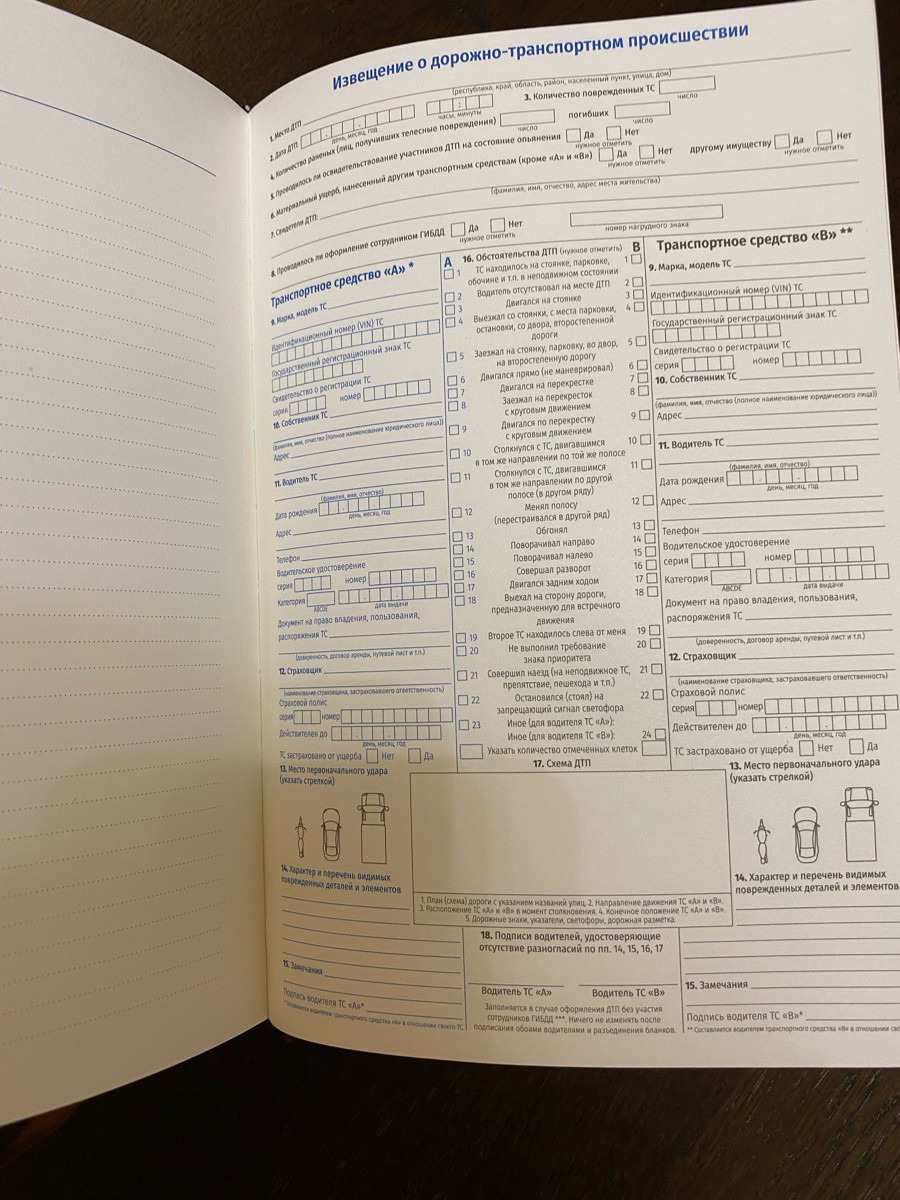 Извещение о дорожно-транспортном происшествии
1. Место ДТП
(республика, край, область, район, населенный пункт, улица, дом)
2. Дата ДТП
день, месяц, год
часы, минуты
3. Количество поврежденных ТС
число
4. Количество раненых (лиц, получивших телесные повреждения)
число
погибших
число
5. Проводилось ли освидетельствование участников ДТП на состояние опьянения Да Нет
нужное отметить
6. Материальный ущерб, нанесенный другим транспортным средствам (кроме «А» и «В») Да Нет
нужное отметить
другому имуществу Да Нет
нужное отметить
7. Свидетели ДТП:
(фамилия, имя, отчество, адрес места жительства)
8. Проводилось ли оформление сотрудником ГИБДД Да Нет
нужное отметить
номер нагрудного знака
Транспортное средство «А» *
9. Марка, модель ТС
Идентификационный номер (VIN) ТС
Государственный регистрационный знак ТС
Свидетельство о регистрации ТС
серия номер
10. Собственник ТС
(фамилия, имя, отчество (полное наименование юридического лица))
Адрес
11. Водитель ТС
(фамилия, имя, отчество)
Дата рождения
день, месяц, год
Адрес
Телефон
Водительское удостоверение
серия номер
Категория
ABCDE дата выдачи
Документ на право владения, пользования,
распоряжения ТС
(доверенность, договор аренды, путевой лист и т.п.)
12. Страховщик
(наименование страховщика, застраховавшего ответственность)
Страховой полис
серия номер
Действителен до
день, месяц, год
ТС застраховано от ущерба Нет Да
13. Место первоначального удара
(указать стрелкой)
14. Характер и перечень видимых
поврежденных деталей и элементов
15. Замечания
Подпись водителя ТС «А»*
*Составляется водителем транспортного средства «А» в отношении своего ТС.
А 16. Обстоятельства ДТП (нужное отметить) В
1 ТС находилось на стоянке, парковке, 1
обочине и т.п. в неподвижном состоянии
2 Водитель отсутствовал на месте ДТП 2
3 Двигался на стоянке 3
4 Выезжал со стоянки, с места парковки, 4
остановки, со двора, второстепенной
дороги
5 Заезжал на стоянку, парковку, во двор, 5
на второстепенную дорогу
6 Двигался прямо (не маневрировал) 6
7 Двигался на перекрестке 7
8 Заезжал на перекресток 8
с круговым движением
9 Двигался по перекрестку 9
с круговым движением
10 Столкнулся с ТС, двигавшимся 10
в том же направлении по той же полосе
11 Столкнулся с ТС, двигавшимся 11
в том же направлении по другой
полосе (в другом ряду)
12 Менял полосу 12
(перестраивался в другой ряд)
13 Обгонял 13
14 Поворачивал направо 14
15 Поворачивал налево 15
16 Совершал разворот 16
17 Двигался задним ходом 17
18 Выехал на сторону дороги, 18
предназначенную для встречного
движения
19 Второе ТС находилось слева от меня 19
20 Не выполнил требование 20
знака приоритета
21 Совершил наезд (на неподвижное ТС, 21
препятствие, пешехода и т.п.)
22 Остановился (стоял) на 22
запрещающий сигнал светофора
23 Иное (для водителя ТС «А»):
Иное (для водителя ТС «В»): 24
Указать количество отмеченных клеток
17. Схема ДТП
1. План (схема) дороги с указанием названий улиц. 2. Направление движения ТС «А» и «В».
3. Расположение ТС «А» и «В» в момент столкновения. 4. Конечное положение ТС «А» и «В».
5. Дорожные знаки, указатели, светофоры, дорожная разметка.
18. Подписи водителей, удостоверяющие
отсутствие разногласий по пп. 14, 15, 16, 17
Водитель ТС «А» Водитель ТС «В»
Заполняется в случае оформления ДТП без участия
сотрудников ГИБДД ***. Ничего не изменять после
подписания обоими водителями и разъединения бланков.
Транспортное средство «В» **
9. Марка, модель ТС
Идентификационный номер (VIN) ТС
Государственный регистрационный знак ТС
Свидетельство о регистрации ТС
серия номер
10. Собственник ТС
(фамилия, имя, отчество (полное наименование юридического лица))
Адрес
11. Водитель ТС
(фамилия, имя, отчество)
Дата рождения
день, месяц, год
Адрес
Телефон
Водительское удостоверение
серия номер
Категория
ABCDE дата выдачи
Документ на право владения, пользования,
распоряжения ТС
(доверенность, договор аренды, путевой лист и т.п.)
12. Страховщик
(наименование страховщика, застраховавшего ответственность)
Страховой полис
серия номер
Действителен до
день, месяц, год
ТС застраховано от ущерба Нет Да
13. Место первоначального удара
(указать стрелкой)
14. Характер и перечень видимых
поврежденных деталей и элементов
15. Замечания
Подпись водителя ТС «В»*
** Составляется водителем транспортного средства «В» в отношении